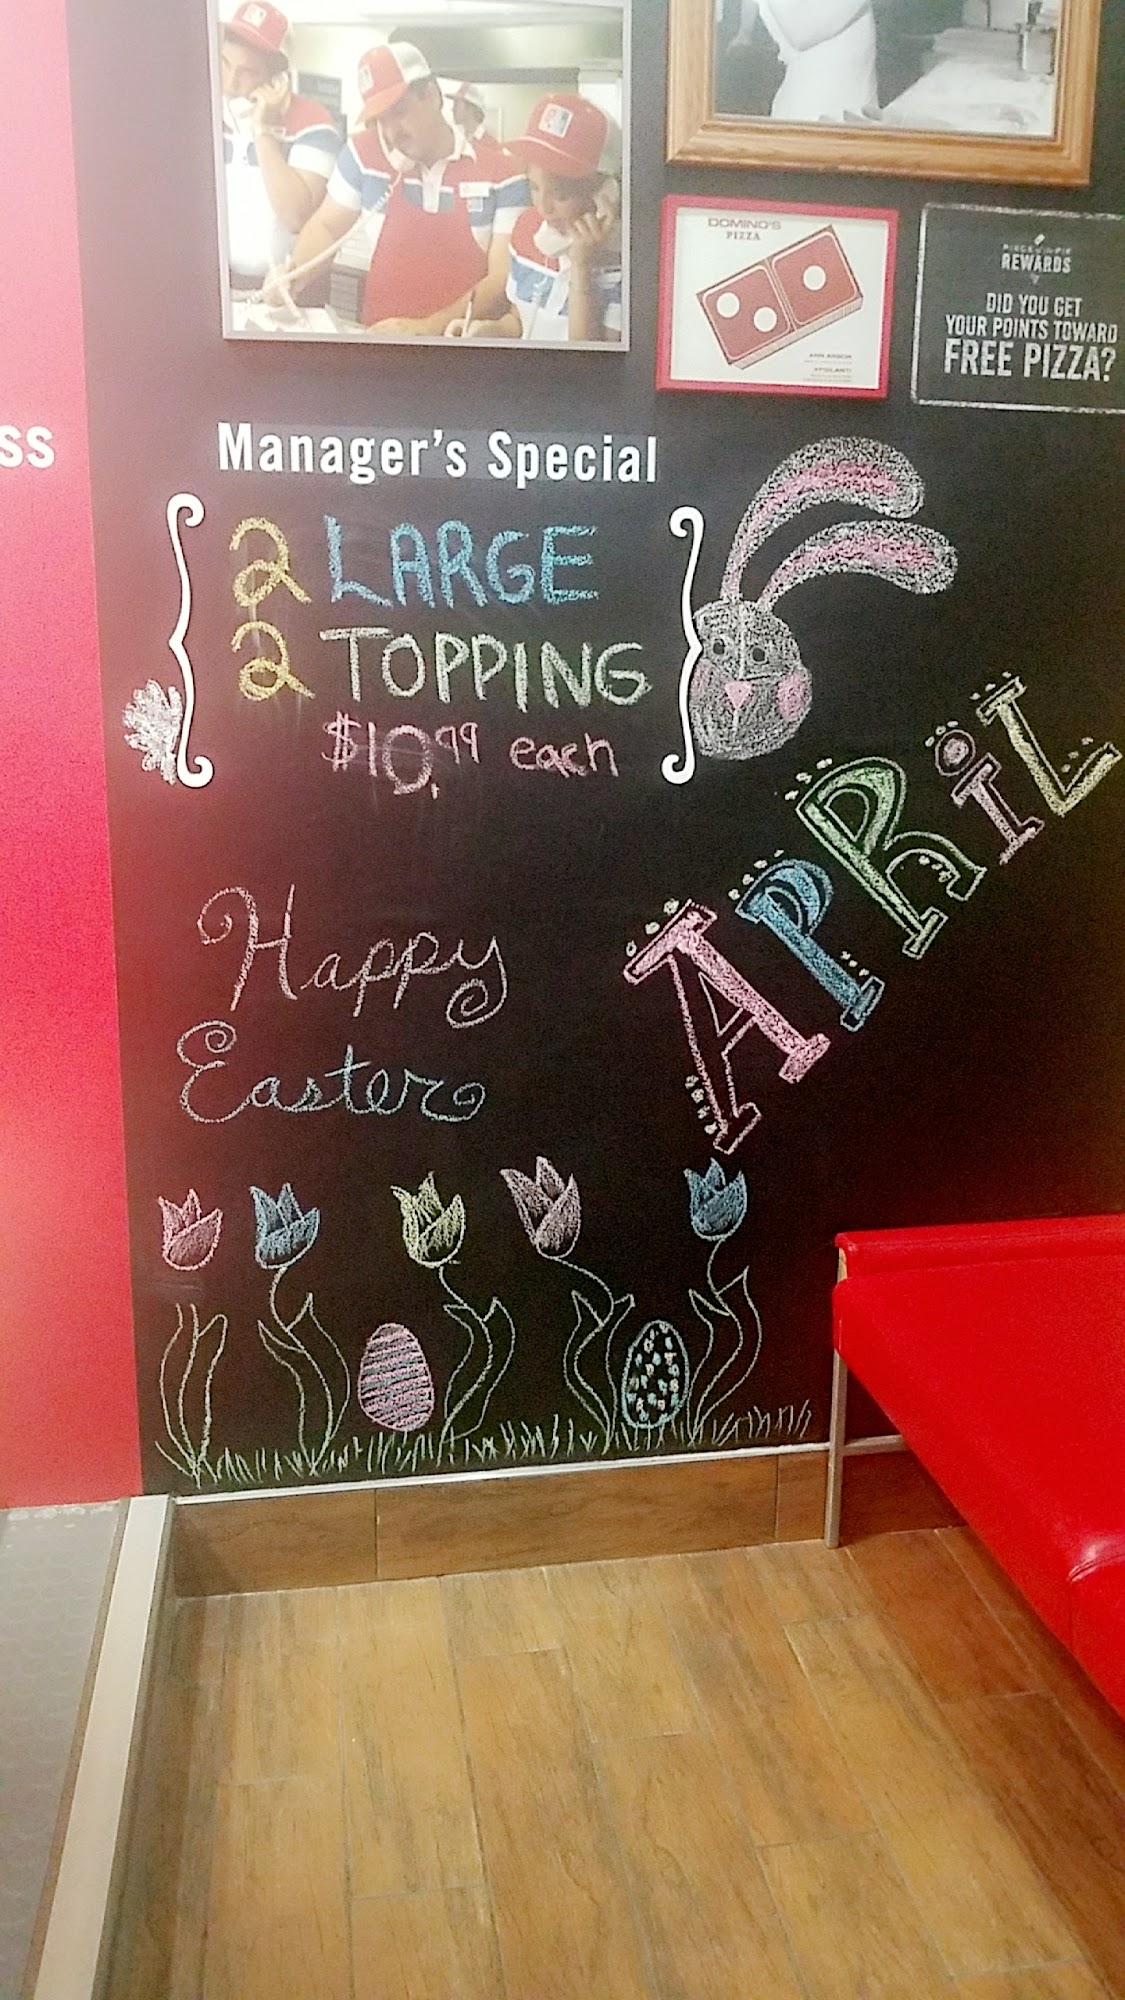 DOMINO'S
PIZZA
ANN ARBOR
YPSILANTI
PIECE OF THE PIE
REWARDS
DID YOU GET
YOUR POINTS TOWARD
FREE PIZZA?
ss
Manager's Special
2 LARGE
2 TOPPING
$10.99 each
APRIL
Happy
Easter